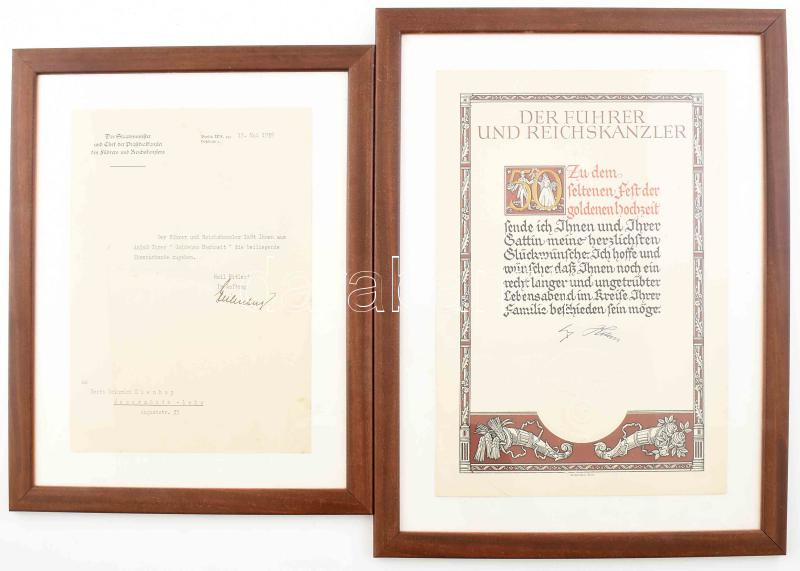 Der Staatsminister
und Chef der Präsidialkanzlei
des Führers und Reichskanzlers
Berlin W8, den 15. Mai 1939
Der Führer und Reichskanzler läßt Ihnen aus
Anlaß Ihrer "Goldenen Hochzeit" die beiliegende
Ehrenurkunde zugehen.
Heil Hitler!
Im Auftrag
An
Herrn Heinrich
Wesermünde - Lehe
DER FÜHRER
UND REICHSKANZLER
50
Zu dem
seltenen Fest der
goldenen Hochzeit
sende ich Ihnen und Ihrer
Gattin meine herzlichsten
Glückwünsche. Ich hoffe und
wünsche, daß Ihnen noch ein
recht langer und ungetrübter
Lebensabend im Kreise Ihrer
Familie beschieden sein möge.
darabanth